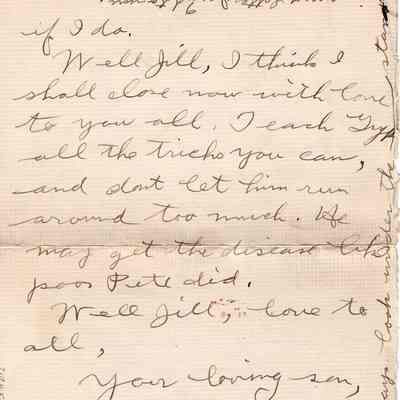 if I do.
Well Jill, I think I
shall close now with love
to you all. Teach Gyp
all the tricks you can,
and dont let him run
around too much. He
may get the disease like
poor Pete did.
Well Jill, love to
all,
Your loving son,
look under the stam